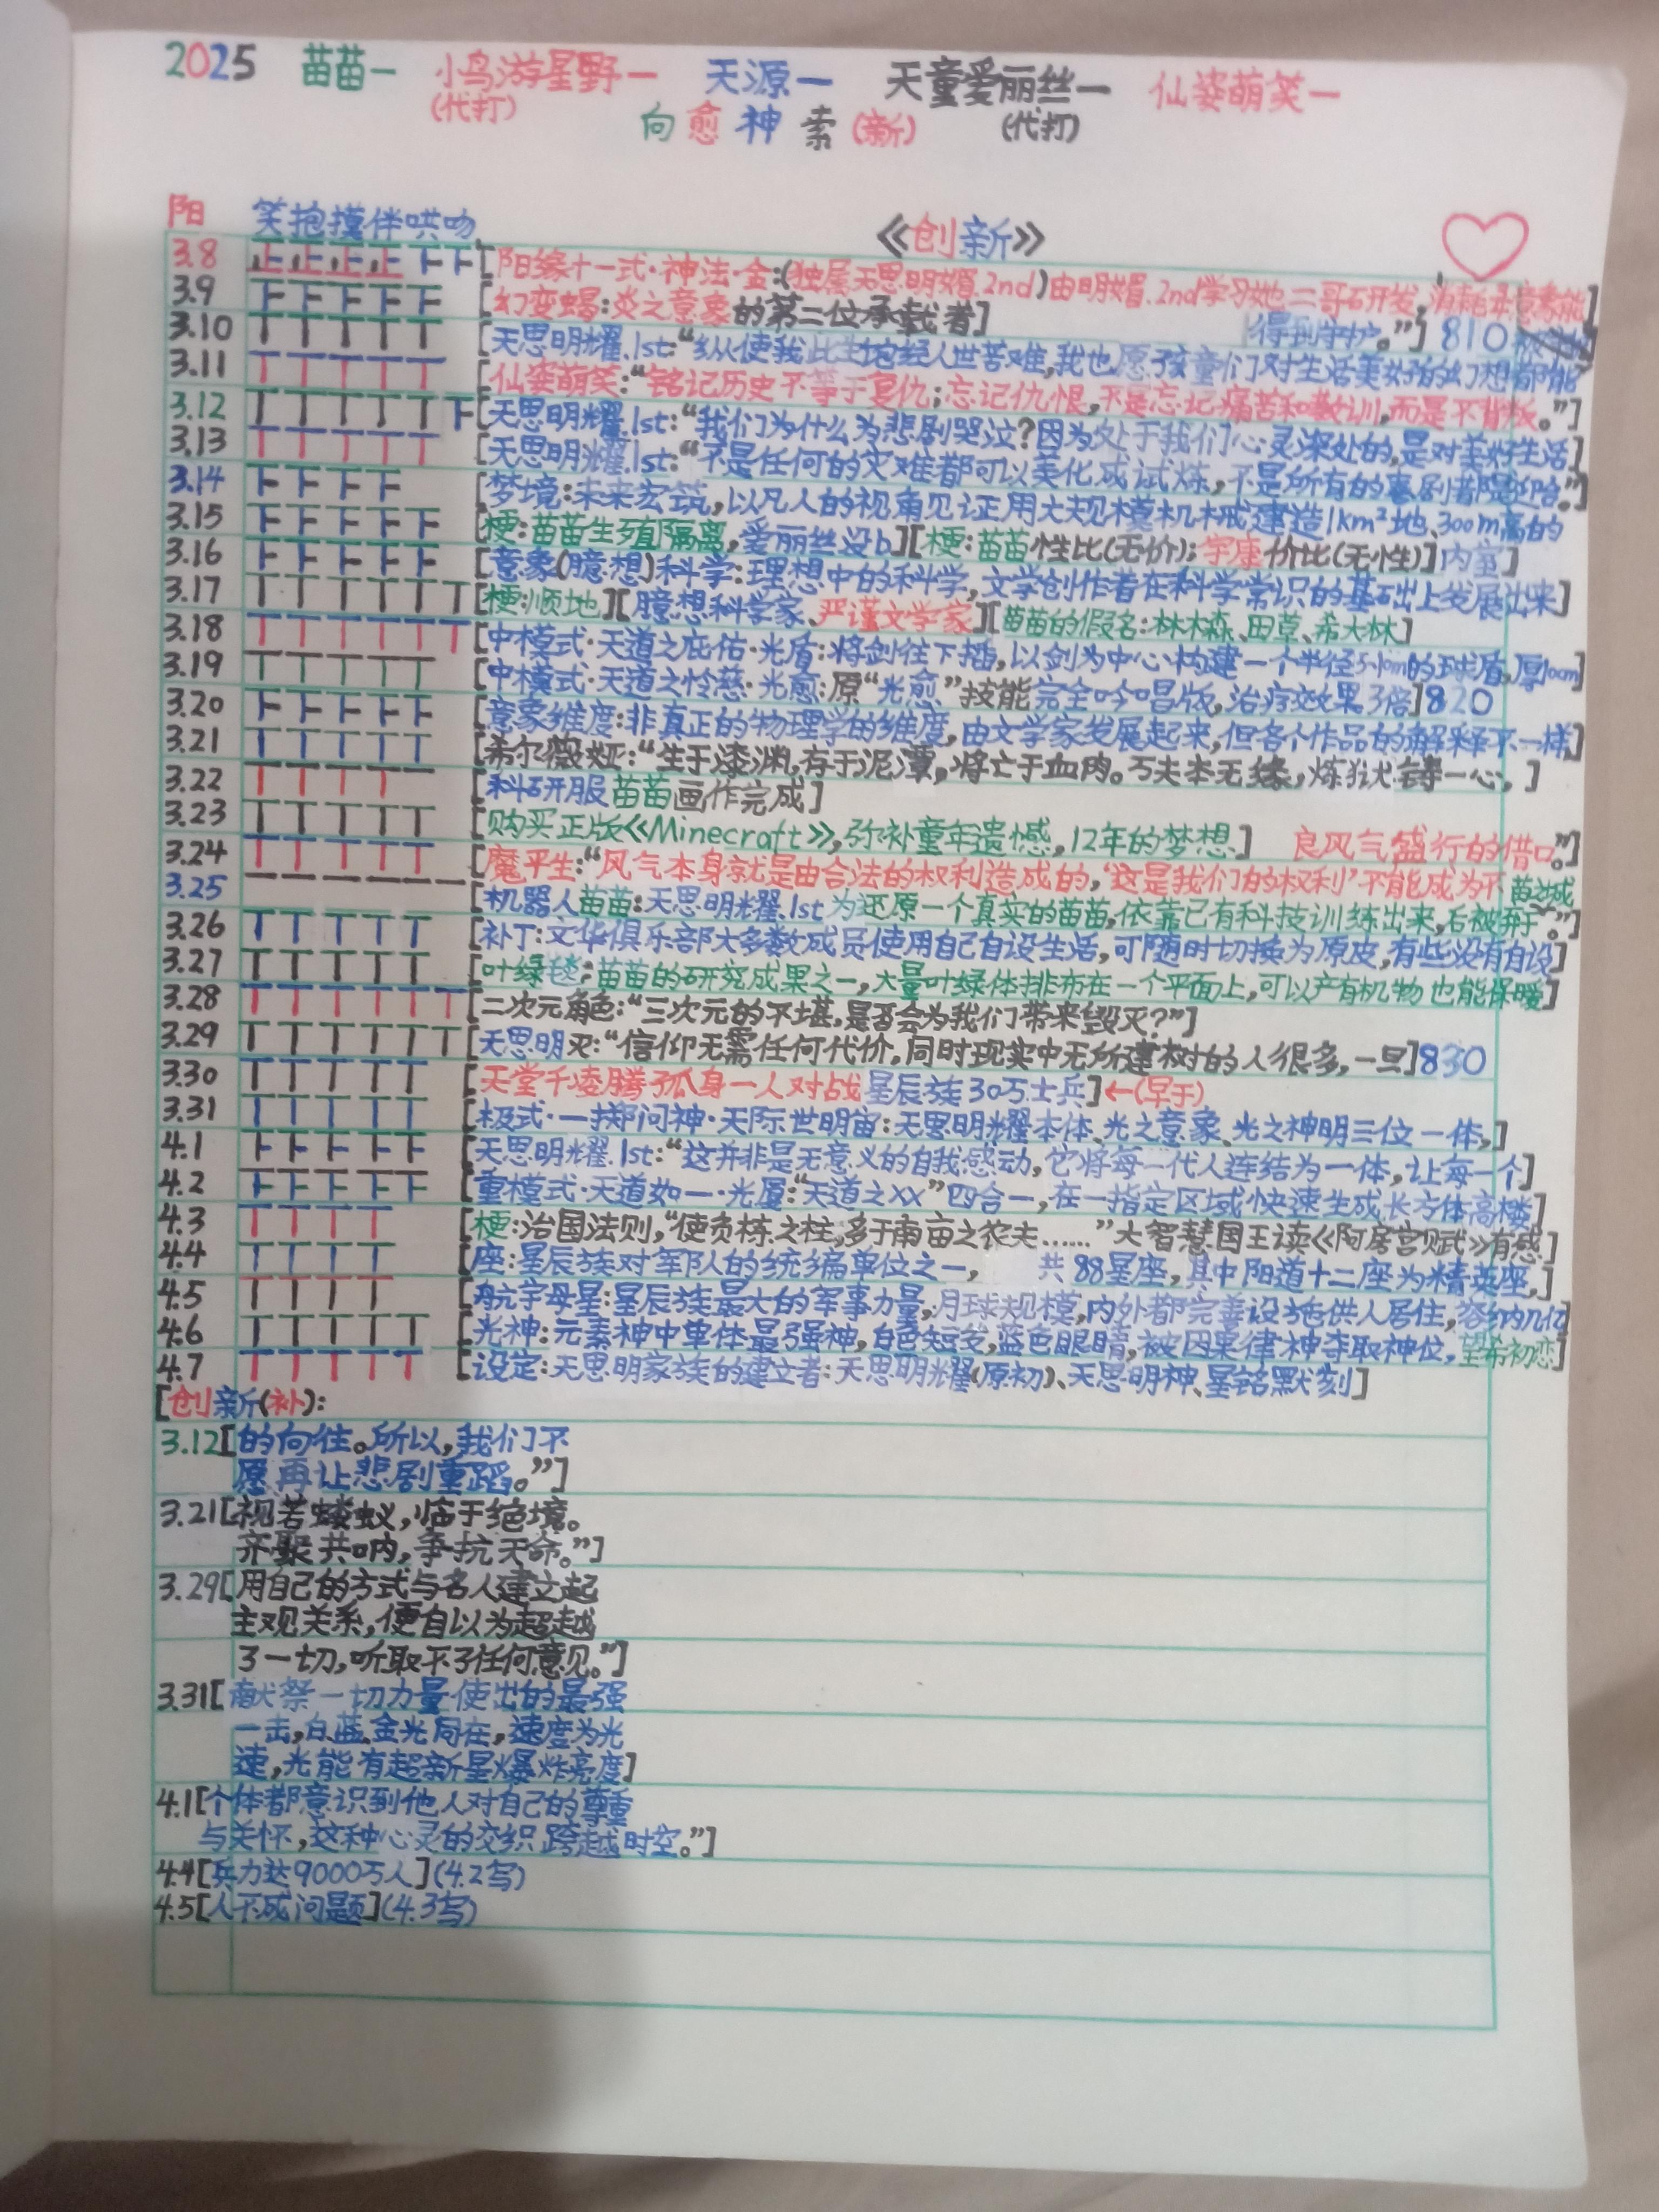 2025 苗苗一 小鸟游星野一 天源一 天童爱丽丝一 仙姿萌笑一
(代打) 向愈神索(新) (代打)
阳 笑抱摸伴哄吻 《创新》
3.8 [阳缘十一式·神法·金:(独属天思明媚.2nd)由明媚.2nd学习她二哥石开发,消耗
3.9 [幻变蝎:炎之意象的第二位承载者]
3.10 得到守护。”]810
[天思明耀.1st:“纵使我此生抱经人世苦难,我也愿孩童们对生活美好的幻想都能
3.11 [仙姿萌笑:“铭记历史不等于复仇;忘记仇恨,不是忘记痛苦和教训,而是不背叛。”]
3.12 [天思明耀.1st:“我们为什么为悲剧哭泣?因为处于我们心灵深处的,是对美好生活]
3.13 [天思明耀.1st:“不是任何的灾难都可以美化成试炼,不是所有的悲剧都是
3.14 [梦境:未来宏筑,以凡人的视角见证用大规模机械建造1km²地、300m高的
3.15 [梗:苗苗生殖隔离,爱丽丝没b][梗:苗苗性比(无价);宇康价比(无性)]内室]
3.16 [意象(臆想)科学:理想中的科学,文学创作者在科学常识的基础上发展出来]
3.17 [梗:顺地][臆想科学家、严谨文学家][苗苗的假名:林木森、田草、希大林]
3.18 [中模式·天道之庇佑·光盾:将剑往下插,以剑为中心构建一个半径5km的球盾,厚10cm]
3.19 [中模式·天道之怜慈·光愈:原“光愈”技能完全吟唱版,治疗效果3倍]820
3.20 [意象维度:非真正的物理学的维度,由文学家发展起来,但各个作品的解释不一样]
3.21 [希尔薇娅:“生于漆渊,存于泥潭,将亡于血肉。丐夫本无缘,炼狱铸一心,]
3.22 [科研服苗苗画作完成]
3.23 [购买正版《Minecraft》,弥补童年遗憾,12年的梦想.] 良风气盛行的借口。”]
3.24 [魔平生:“风气本身就是由合法的权利造成的,‘这是我们的权利’不能成为不
3.25 [机器人苗苗:天思明耀.1st为还原一个真实的苗苗,依靠已有科技训练出来,后被弃于苗城。”]
3.26 [补丁:文华俱乐部大多数成员使用自己自设生活,可随时切换为原皮,有些没有自设]
3.27 [叶绿毯:苗苗的研究成果之一,大量叶绿体排布在一个平面上,可以产有机物也能保暖]
3.28 [二次元角色:“三次元的不堪,是否会为我们带来毁灭?”]
3.29 [天思明灭:“信仰无需任何代价,同时现实中无所建树的人很多,一旦]830
3.30 [天堂千凌腾孤身一人对战星辰族30万士兵]←(早于)
3.31 [极式·一掷问神·天际世明宙:天思明耀本体、光之意象、光之神明三位一体,]
4.1 [天思明耀.1st:“这并非是无意义的自我感动,它将每一代人连结为一体,让每一个]
4.2 [重模式·天道如一·光厦:“天道之XX”四合一,在一指定区域快速生成长方体高楼]
4.3 [梗:治国法则,“使负栋之柱,多于南亩之农夫……”大智慧国王读《阿房宫赋》有感]
4.4 [座:星辰族对军队的统编单位之一, 共88星座,其中阳道十二座为精英座,]
4.5 [航宇母星:星辰族最大的军事力量,月球规模,内外都完善设施供人居住,容纳几亿]
4.6 [光神:元素神中单体最强神,白色短发,蓝色眼睛,被因果律神夺取神位,望希初恋]
4.7 [设定:天思明家族的建立者:天思明耀(原初)、天思明神、星铭默刻]
[创新(补):
3.12[的向往。所以,我们不
愿再让悲剧重蹈。”]
3.21[视若蝼蚁,临于绝境。
齐聚共呐,争抗天命。”]
3.29[用自己的方式与名人建立起
主观关系,便自以为超越
了一切,听取不了任何意见。”]
3.31[献祭一切力量使出的最强
一击,白蓝金光同在,速度为光
速,光能有超新星爆炸亮度]
4.1[个体都意识到他人对自己的尊重
与关怀,这种心灵的交织跨越时空。”]
4.4[兵力达9000万人](4.2写)
4.5[人不成问题](4.3写)